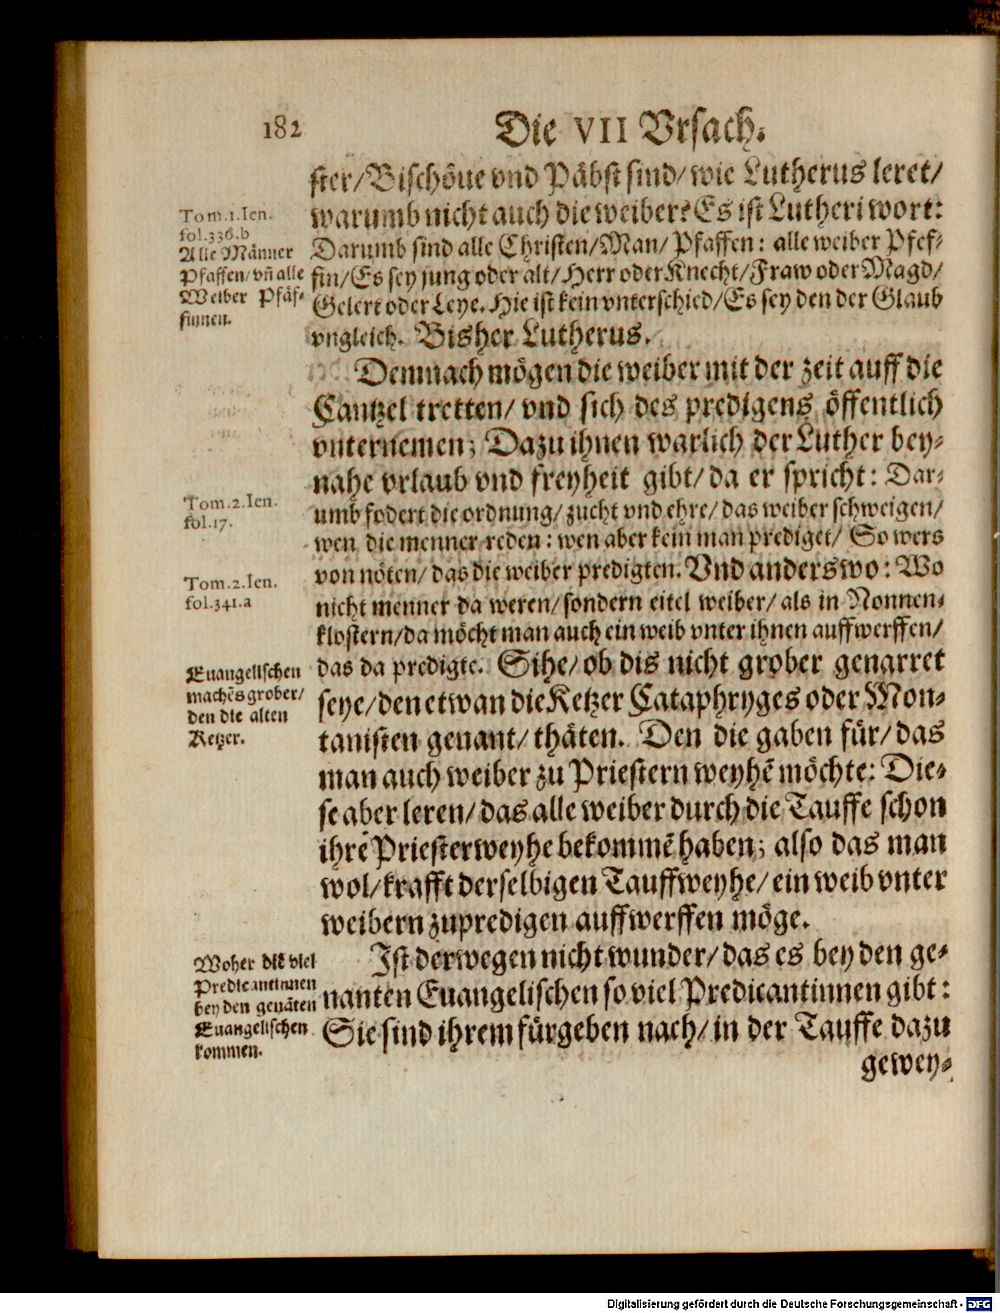 182
Die VII Vrsach.
ster/Bischöue vnd Päbst sind/wie Lutherus leret/
warumb nicht auch die weiber? Es ist Lutheri wort:
Darumb sind alle Christen/Man/Pfaffen: alle weiber Pfef⸗
fin/Es sey jung oder alt/Herr oder Knecht/Fraw oder Magd/
Gelert oder Leye. Hie ist kein vnterschied/Es sey den der Glaub
vngleich. Bisher Lutherus.
Tom.1.Ien.
fol.336.b
Alle Männer
Pfaffen/vñ alle
Weiber Pfäf⸗
finnen.
Demnach mögen die weiber mit der zeit auff die
Cantzel tretten/ vnd sich des predigens öffentlich
vnternemen; Dazu ihnen warlich der Luther bey⸗
nahe vrlaub vnd freyheit gibt/da er spricht: Dar⸗
umb fodert die ordnung/zucht vnd ehre/das weiber schweigen/
wen die menner reden: wen aber kein man prediget/ So wers
von nöten/das die weiber predigten. Vnd anderswo: Wo
nicht menner da weren/sondern eitel weiber/als in Nonnen⸗
klostern/da möcht man auch ein weib vnter ihnen auffwerffen/
das da predigte. Sihe/ob dis nicht grober genarret
seye/den etwan die Ketzer Cataphryges oder Mon⸗
tanisten genant/thäten. Den die gaben für/das
man auch weiber zu Priestern weyhẽ möchte: Die⸗
se aber leren/das alle weiber durch die Tauffe schon
ihrẽ Priesterweyhe bekommẽ haben; also das man
wol/krafft derselbigen Tauffweyhe/ein weib vnter
weibern zupredigen auffwerffen möge.
Tom.2.Ien.
fol.17.
Tom.2.Ien.
fol.341.a
Euangelischen
machẽs grober/
den die alten
Ketzer.
Ist derwegen nicht wunder/das es bey den ge⸗
nanten Euangelischen so viel Predicantinnen gibt:
Sie sind ihrem fürgeben nach/in der Tauffe dazu
gewey⸗
Woher die viel
Predicantinnen
bey den genãten
Euangelischen
kommen.
Digitalisierung gefördert durch die Deutsche Forschungsgemeinschaft - DFG